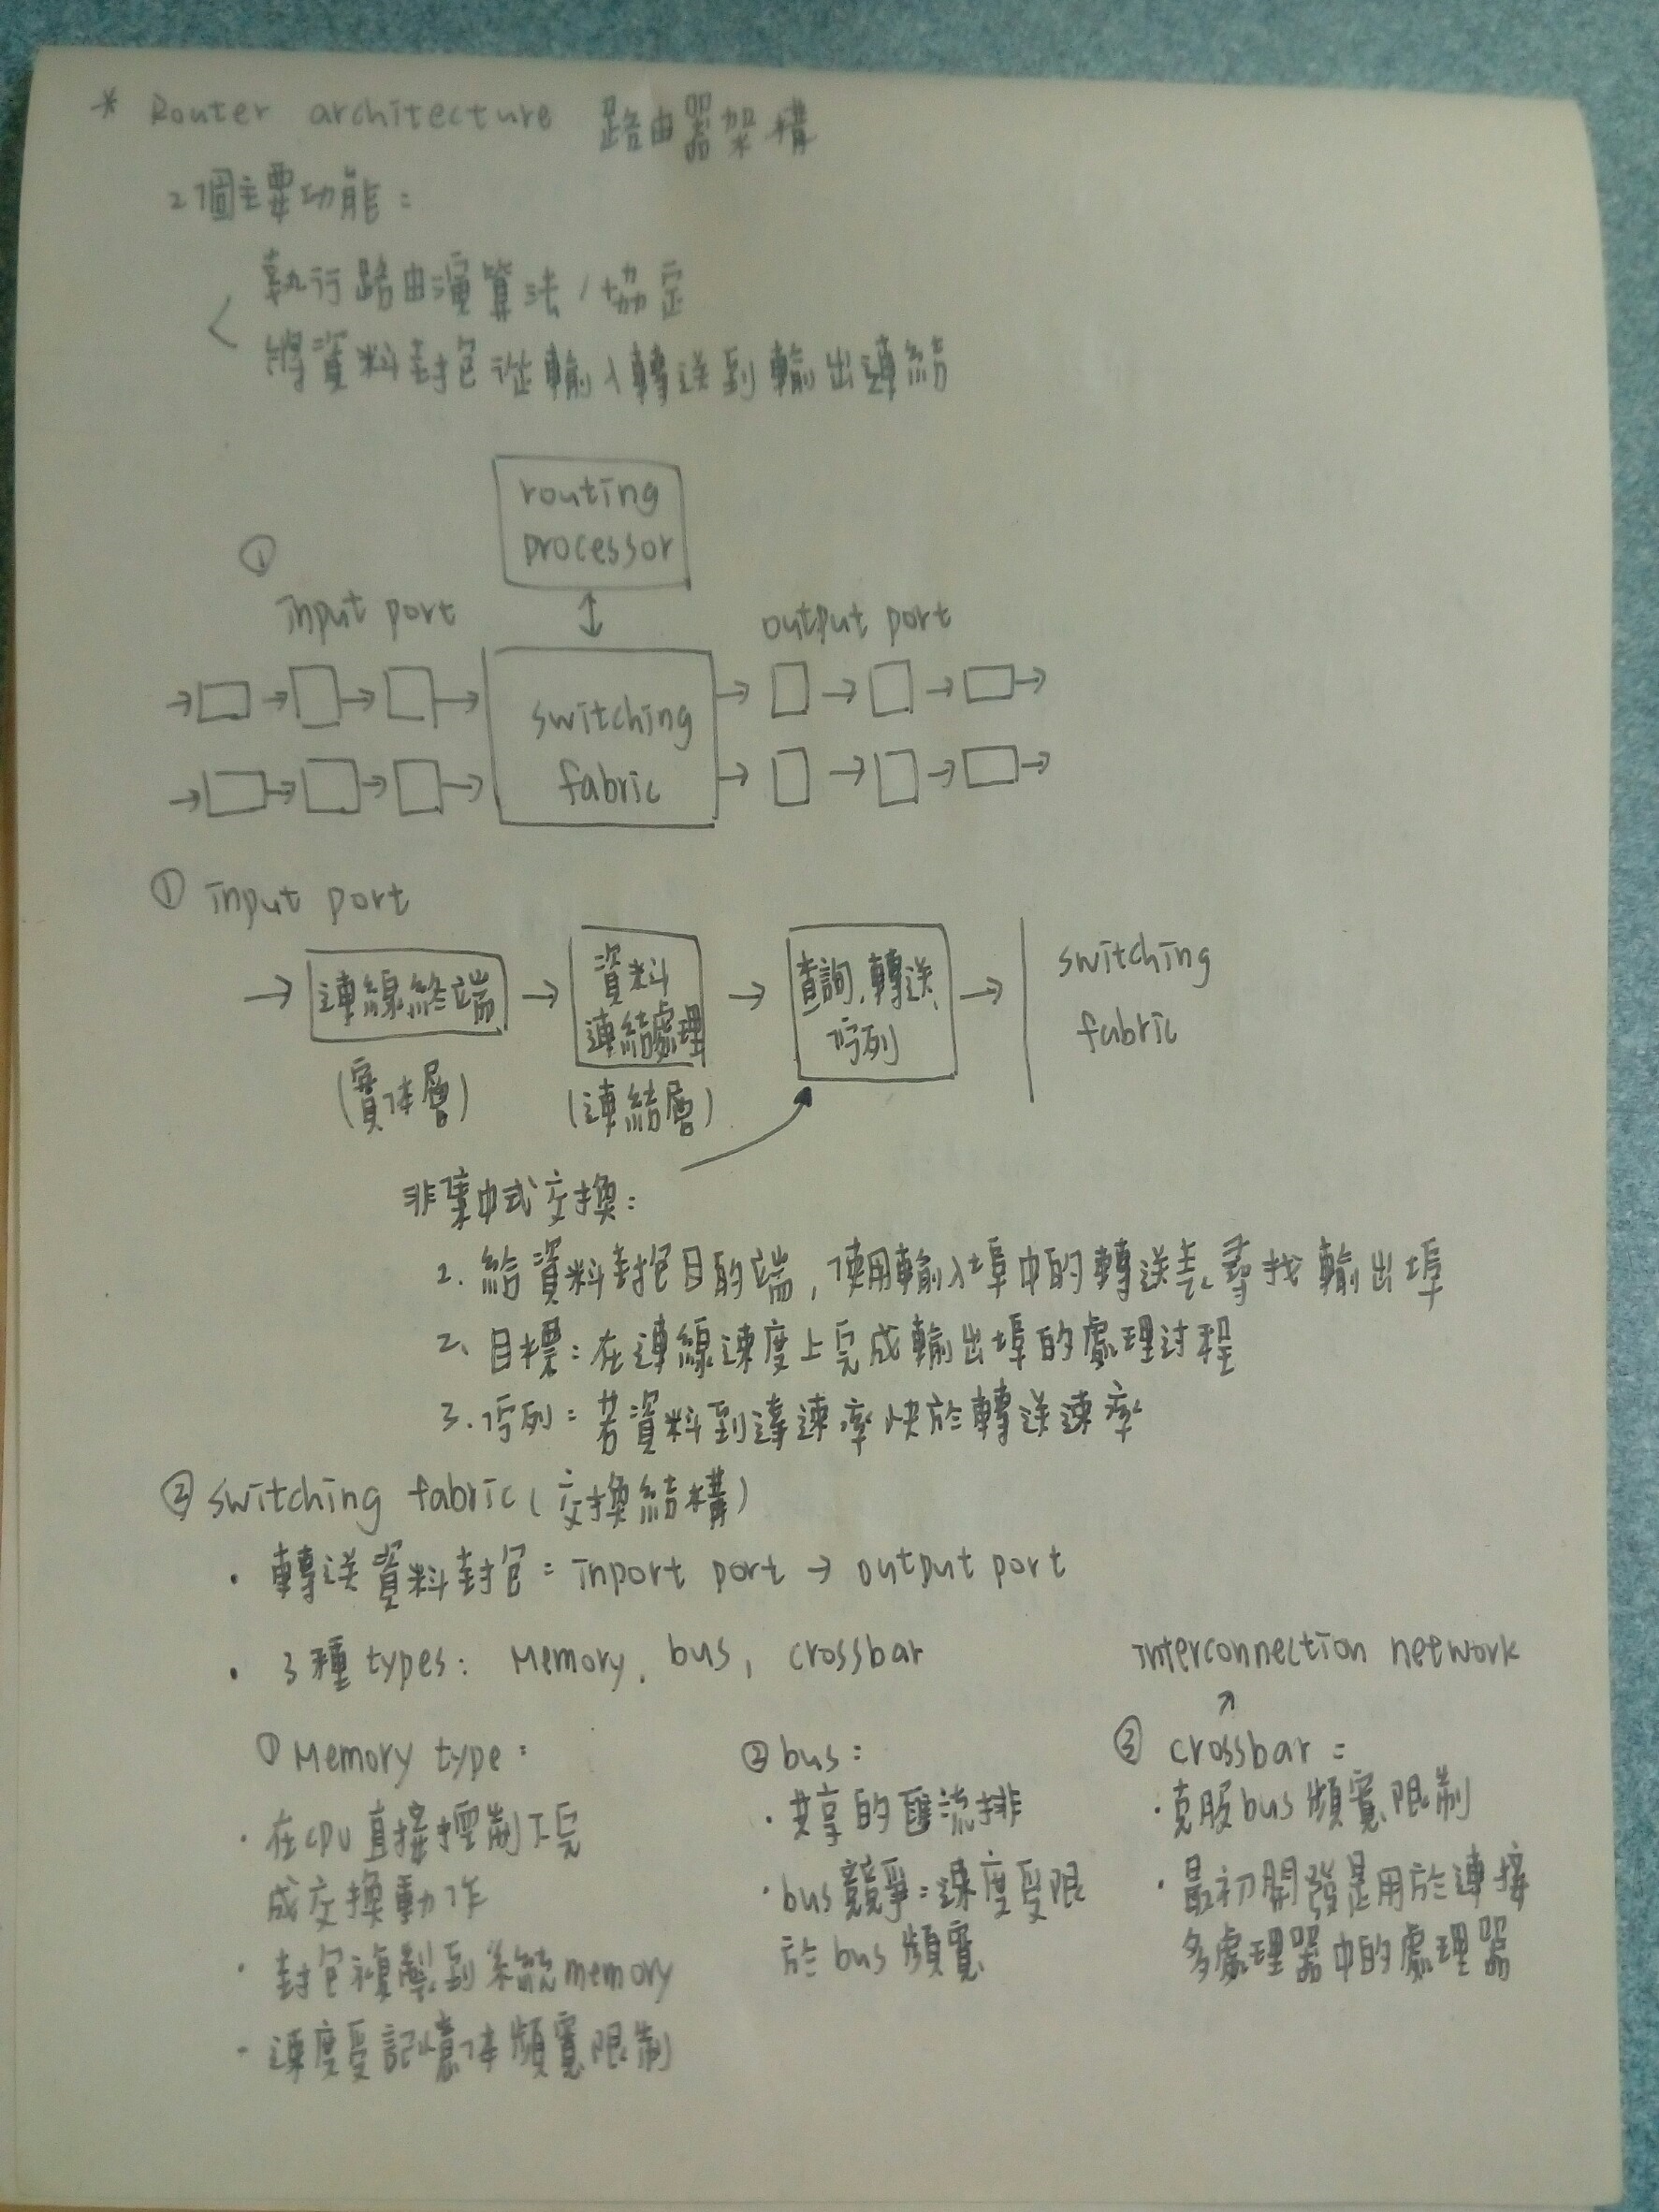 * Router architecture 路由器架構
2個主要功能:
執行路由演算法/協定
將資料封包從輸入轉送到輸出連結
routing
processor
①
input port
output port
switching
fabric
① input port
連線終端
(實体層)
資料
連結處理
(連結層)
查詢,轉送,
佇列
switching
fabric
非集中式交換:
1. 給資料封包目的端,使用輸入埠中的轉送表尋找輸出埠
2、目標:在連線速度上完成輸出埠的處理过程
3.佇列:若資料到達速率快於轉送速率
② switching fabric(交換結構)
· 轉送資料封包:inport port → output port
· 3種types: Memory, bus, crossbar
interconnection network
① Memory type:
· 在CPU直接控制下完
成交換動作
· 封包複製到系統memory
- 速度受記憶体頻寬限制
② bus:
· 共享的匯流排
· bus競爭:速度受限
於bus頻寬
③ crossbar:
· 克服bus頻寬限制
· 最初開發是用於連接
多處理器中的處理器